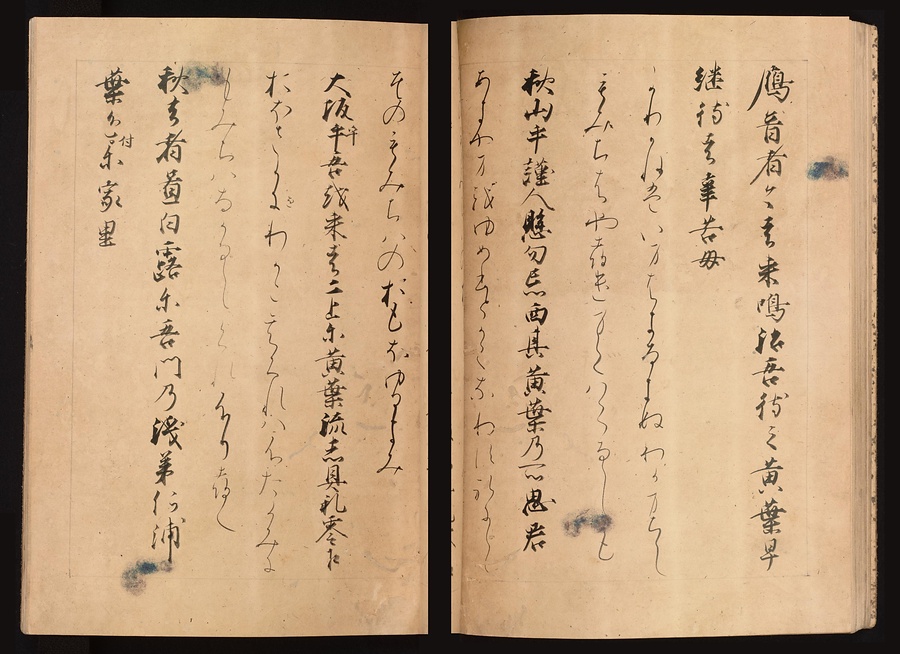 鴈音者今者来鳴沼吾待之黄葉早
継待者辛苦母
かりかねはいまはきなきぬわかまちし
もみちはやつけまてはくるしも
秋山乎謹人懸勿忘西其黄葉乃所思君
あきやまをゆめひとかくなわすれにし
そのもみちはのおもほゆるきみ
大坂乎吾越来者二上尓黄葉流志具礼零乍
おほさかをわかこえくれはふたかみに
もみちはなかるしくれふりつゝ
秋去者置白露尓吾門乃浅茅何浦
葉色付尓家里